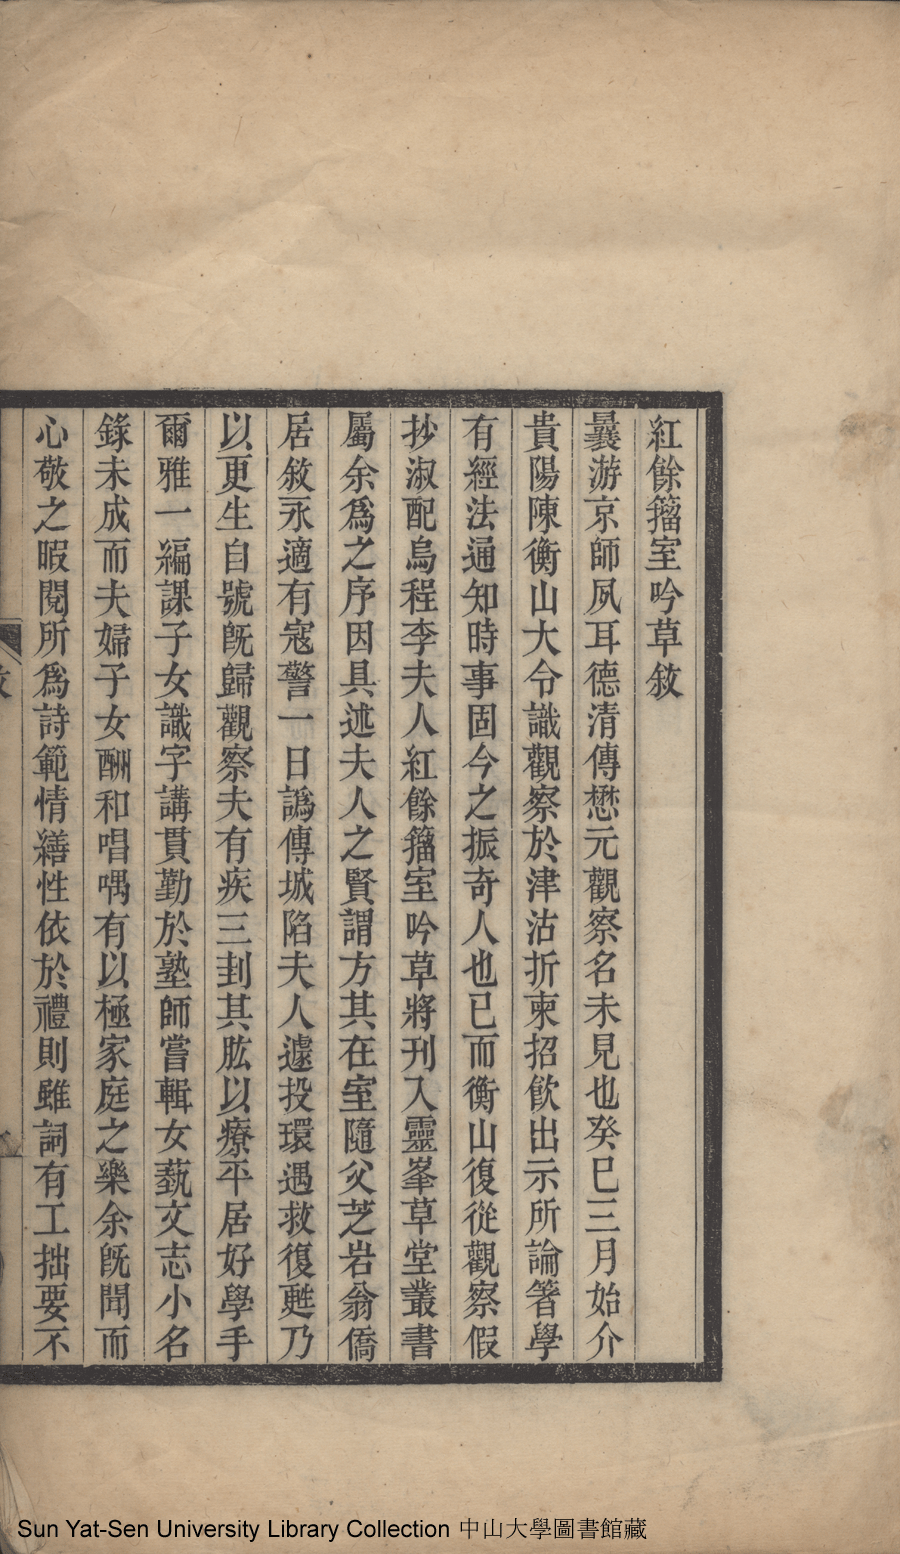 紅餘籀室吟草敘
曩游京師夙耳德清傅懋元觀察名未見也癸巳三月始介
貴陽陳衡山大令識觀察於津沽折柬招飲出示所論箸學
有經法通知時事固今之振奇人也已而衡山復從觀察假
抄淑配烏程李夫人紅餘籀室吟草將刊入靈峯草堂叢書
屬余爲之序因具述夫人之賢謂方其在室隨父芝岩翁僑
居敘永適有寇警一日譌傳城陷夫人遽投環遇救復甦乃
以更生自號旣歸觀察夫有疾三刲其肱以療平居好學手
爾雅一編課子女識字講貫勤於塾師嘗輯女藝文志小名
錄未成而夫婦子女酬和唱喁有以極家庭之樂余旣聞而
心敬之暇閱所爲詩範情繕性依於禮則雖詞有工拙要不
Sun Yat-Sen University Library Collection 中山大學圖書館藏